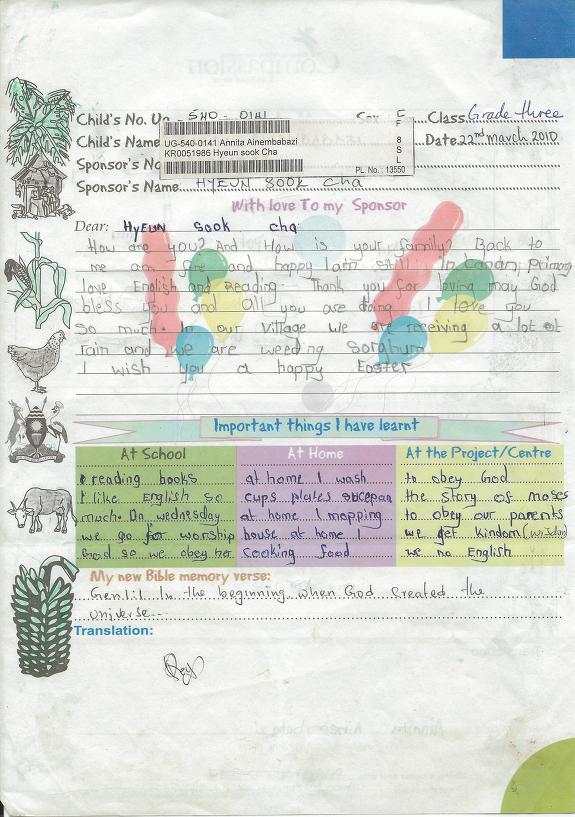 Child's No. Ug - 540 - 0141 Sex F Class Grade three
Child's Name Date 22nd March 2010
UG-540-0141 Annita Ainembabazi
KR0051986 Hyeun sook Cha
C
F
8
S
L
PL. No. : 13550
Sponsor's No
Sponsor's Name HYEUN SOOK cha
With love To my Sponsor
Dear: HyEUN sook cha
How are you? And How is your family? Back to
me am fine and happy Iam still In canan primary
love English and Reading. Thank you for loving may God
bless you and all you are doing I love you
So much. In our Village we are receiving a lot of
rain and we are weeding Sorghum
I wish you a happy Easter
Important things I have learnt
At School
reading books
I like English so
much. On wednesday
we go for worship
God so we obey her
At Home
at home I wash
cups plates sucepan
at home I mopping
house at home I
cooking food
At the Project/Centre
to obey God
the story of moses
to obey our parents
we get kindom
we no English
My new Bible memory verse:
Gen.1:1 In the beginning when God created the
universe
Translation: